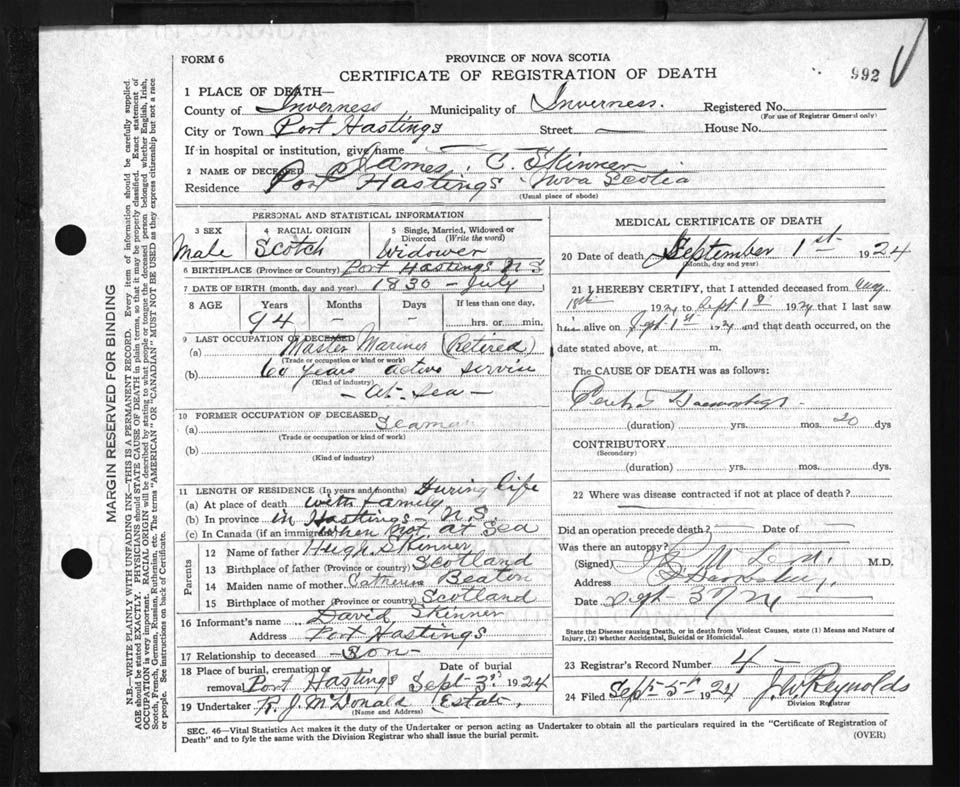 FORM 6
PROVINCE OF NOVA SCOTIA
CERTIFICATE OF REGISTRATION OF DEATH
992
1 PLACE OF DEATH—
County of Inverness Municipality of Inverness. Registered No.
(For use of Registrar General only)
City or Town Port Hastings Street — House No.
If in hospital or institution, give name —
2 NAME OF DECEASED James. C. Skinner
Residence Port Hastings Nova Scotia
(Usual place of abode)
PERSONAL AND STATISTICAL INFORMATION
3 SEX
Male
4 RACIAL ORIGIN
Scotch
5 Single, Married, Widowed or Divorced (Write the word)
Widower
6 BIRTHPLACE (Province or Country) Port Hastings N S
7 DATE OF BIRTH (month, day and year) 1830 – July
8 AGE Years Months Days If less than one day,
94 – – hrs. or min.
9 LAST OCCUPATION OF DECEASED
(a) Master Mariner (Retired)
(Trade or occupation or kind of work)
(b) 60 years active service
(Kind of industry)
– at – Sea –
10 FORMER OCCUPATION OF DECEASED
(a) Seaman
(Trade or occupation or kind of work)
(b)
(Kind of industry)
11 LENGTH OF RESIDENCE (In years and months) During life
(a) At place of death with family
(b) In province in Hastings – N.S.
(c) In Canada (if an immigrant) when not at Sea
Parents
12 Name of father Hugh Skinner
13 Birthplace of father (Province or country) Scotland
14 Maiden name of mother Catherine Beaton
15 Birthplace of mother (Province or country) Scotland
16 Informant's name David Skinner
Address Port Hastings
17 Relationship to deceased – Son –
18 Place of burial, cremation or removal Port Hastings
Date of burial Sept. 3rd 1924
19 Undertaker R. J. McDonald Estate,
(Name and Address)
MEDICAL CERTIFICATE OF DEATH
20 Date of death September 1st 1924
(Month, day and year)
21 I HEREBY CERTIFY, that I attended deceased from Aug
1924 to Sept 1st 1924 that I last saw
him alive on Sept 1st 1924 and that death occurred, on
date stated above, at m.
The CAUSE OF DEATH was as follows:
(duration) yrs. mos. 20 dys
CONTRIBUTORY
(Secondary)
(duration) yrs. mos. dys.
22 Where was disease contracted if not at place of death?
Did an operation precede death? — Date of —
Was there an autopsy?
(Signed) M.D.
Address
Date Sept – 3rd / 24 –
State the Disease causing Death, or in death from Violent Causes, state (1) Means and Nature of
Injury, (2) whether Accidental, Suicidal or Homicidal.
23 Registrar's Record Number 4 –
24 Filed Sept. 5th 1924 J. W. Reynolds
Division Registrar
SEC. 46—Vital Statistics Act makes it the duty of the Undertaker or person acting as Undertaker to obtain all the particulars required in the "Certificate of Registration of
Death" and to fyle the same with the Division Registrar who shall issue the burial permit.
(OVER)
MARGIN RESERVED FOR BINDING
N.B.—WRITE PLAINLY WITH UNFADING INK—THIS IS A PERMANENT RECORD. Every item of information should be carefully supplied.
AGE should be stated EXACTLY. PHYSICIANS should STATE CAUSE OF DEATH in plain terms, so that it may be properly classified. Exact statement of
OCCUPATION is very important. RACIAL ORIGIN will be described by stating to what people or tongue the deceased person belonged whether English, Irish,
Scotch, French, German, Russian, Ruthenian, etc. The terms "AMERICAN" OR "CANADIAN" MUST NOT BE USED as they express citizenship but not a race
or people. See instructions on back of Certificate.